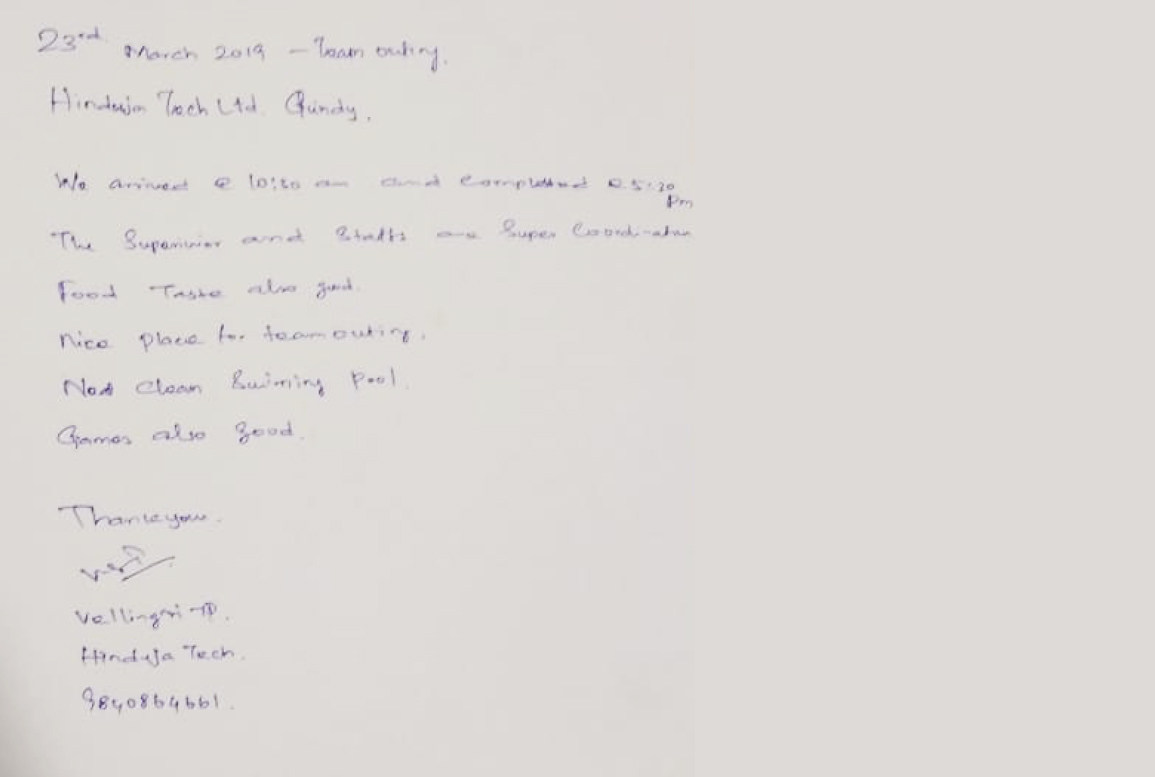 23rd March 2019 - Team outing.
Hinduja Tech Ltd. Guindy.
We arrived @ 10:30 am and Completed @ 5:30 Pm
The Supervisor and Staffs are Super Coordination
Food Taste also good.
Nice place for team outing.
Neat Clean Swiming Pool.
Games also good.
Thankyou.
Vellingiri TP.
Hinduja Tech.
9840864661.